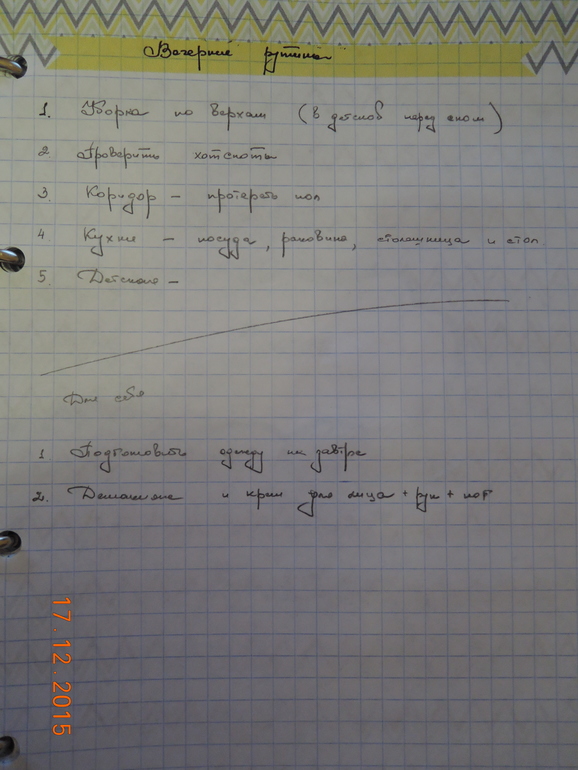 Вечерние рутины
1. Уборка по верхам (в детской перед сном)
2 Проверить хотспоты
3. Коридор – протереть пол
4. Кухня – посуда, раковина, столешница и стол.
5. Детская –
Для себя
1 Подготовить одежду на завтра
2. Демакияж и крем для лица + рук + ног
17.12.2015